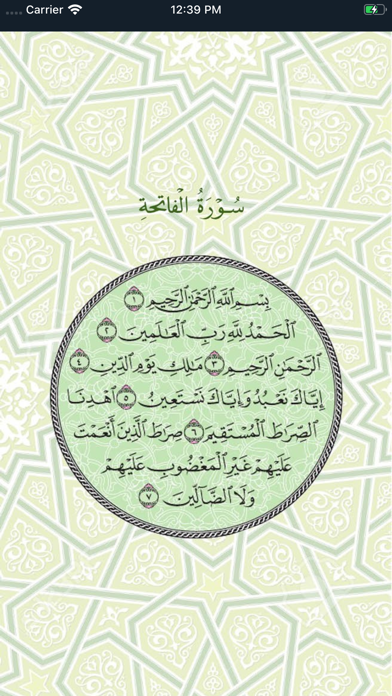 Carrier 12:39 PM
سُورَةُ الْفَاتِحَةِ
بِسْمِ اللَّهِ الرَّحْمَٰنِ الرَّحِيمِ ١
الْحَمْدُ لِلَّهِ رَبِّ الْعَٰلَمِينَ ٢
الرَّحْمَٰنِ الرَّحِيمِ ٣ مَٰلِكِ يَوْمِ الدِّينِ ٤
إِيَّاكَ نَعْبُدُ وَإِيَّاكَ نَسْتَعِينُ ٥ اهْدِنَا
الصِّرَٰطَ الْمُسْتَقِيمَ ٦ صِرَٰطَ الَّذِينَ أَنْعَمْتَ
عَلَيْهِمْ غَيْرِ الْمَغْضُوبِ عَلَيْهِمْ
وَلَا الضَّالِّينَ ٧